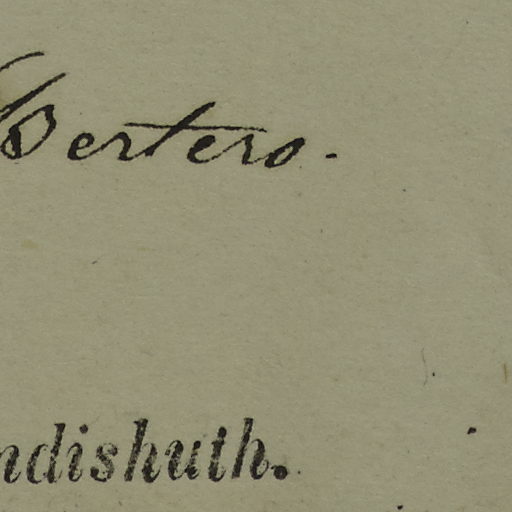 Bertero.
ndishuth.